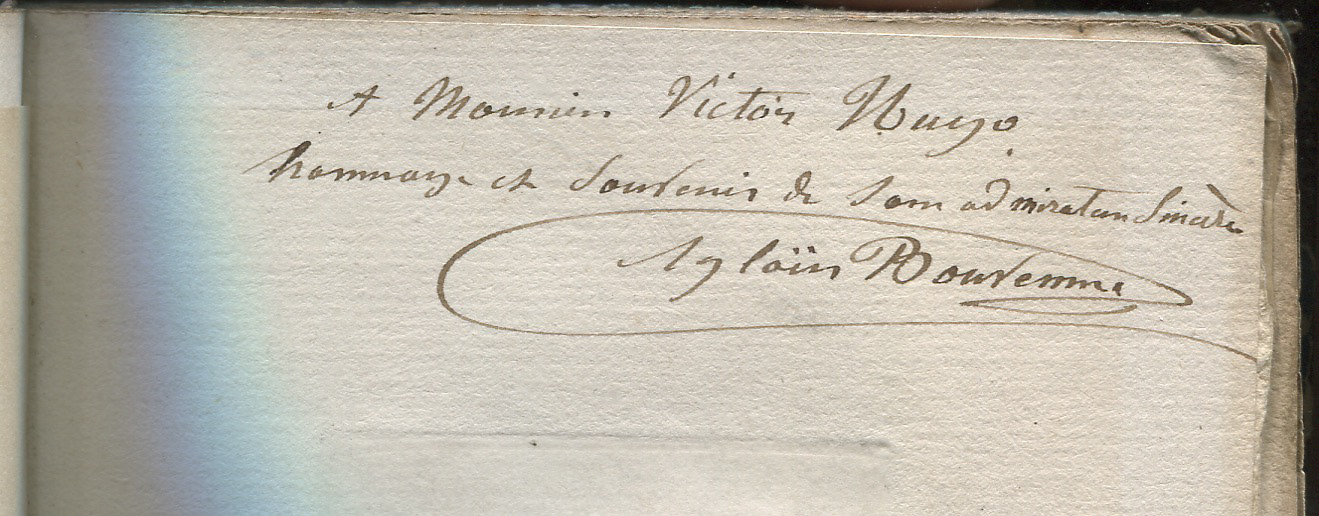 A Monsieur Victor Hugo
hommage et Souvenir de Son admirateur Sincère
Aglaüs Bouvenne